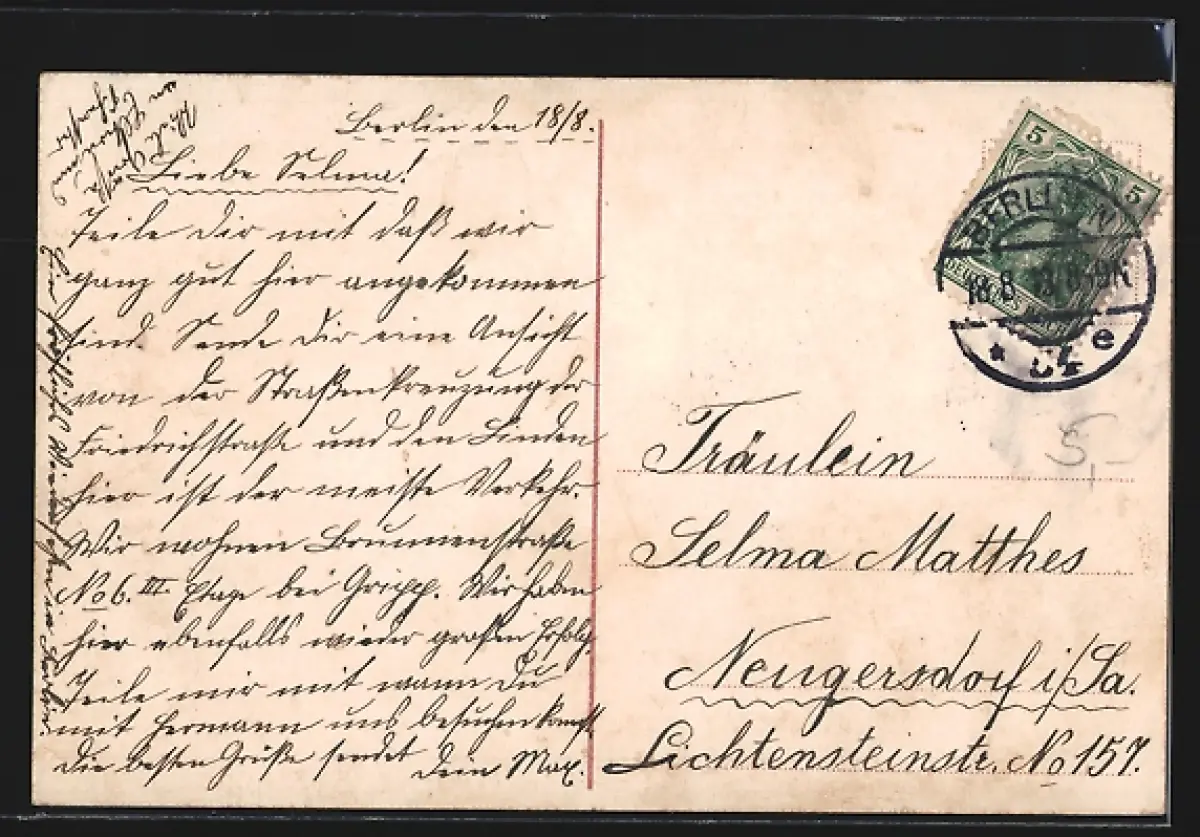 Berlin den 18/8.
Liebe Selma!
Teile dir mit daß wir
ganz gut hier angekommen
sind. Sende dir eine Ansicht
von der Straßenkreuzung der
Friedrichstraße und den Linden
hier ist der meiste Verkehr.
Wir wohnen Brunnenstraße
No 6. III. Etage bei Gripp. Wir haben
hier ebenfalls wieder großen Erfolg.
Teile mir mit wann du
mit Hermann uns besuchen kommst
Die besten Grüße sendet Dein Max.
Viele Grüße
von
Fräulein
Selma Matthes
Neugersdorf i/Sa.
Lichtensteinstr. No 157.
5 5
BERLIN N
18.8. 8-9N
* 4 e
5,-